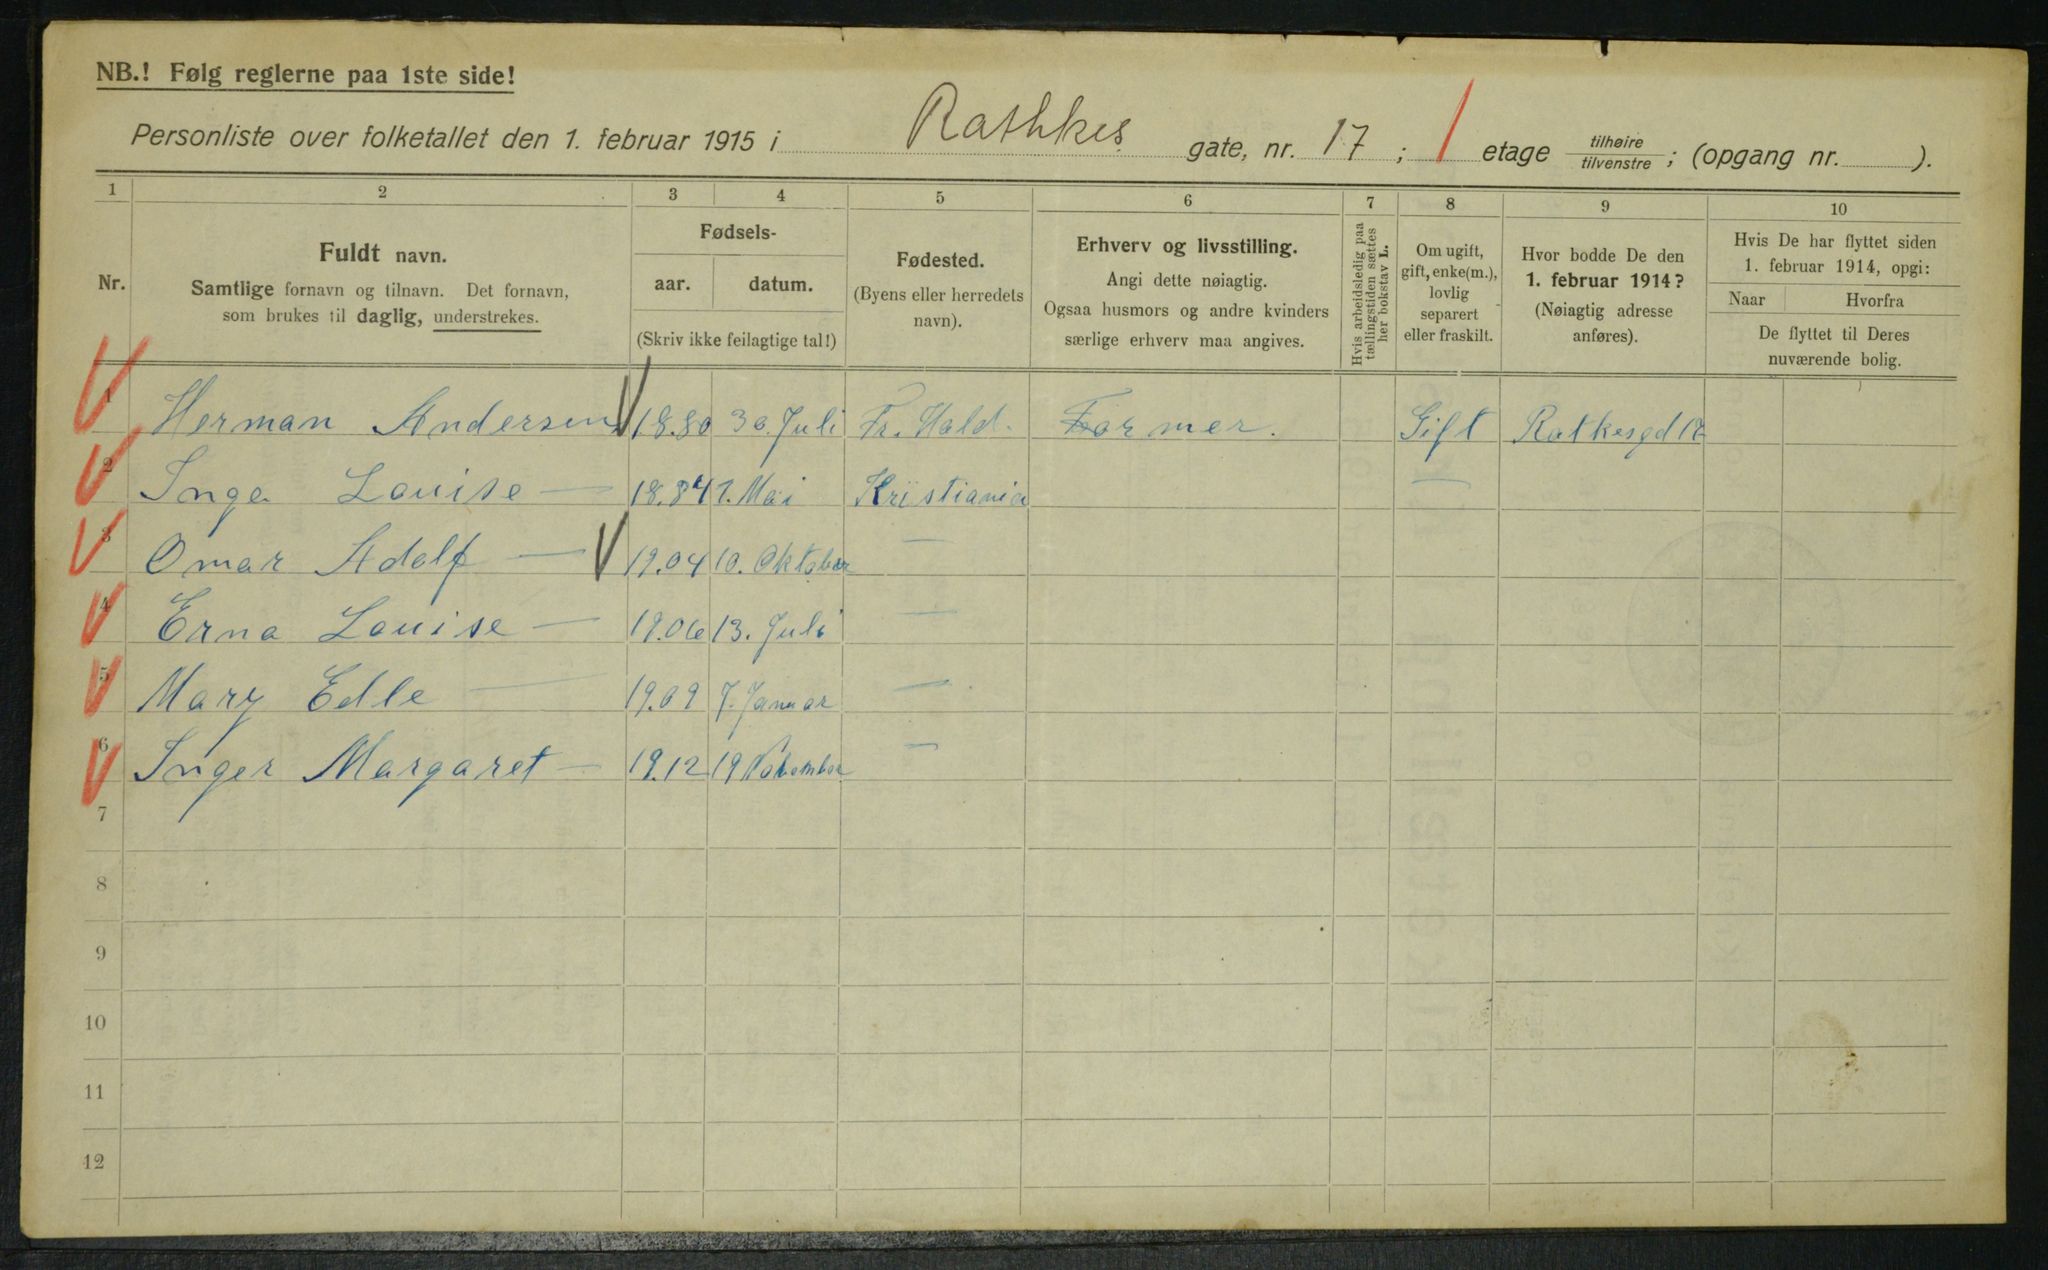 NB.! Følg reglerne paa 1ste side!
Personliste over folketallet den 1. februar 1915 i Rathkes gate, nr. 17 ; 1 etage tilhøire / tilvenstre ; (opgang nr. ).
1 2 3 4 5 6 7 8 9 10
Nr.
Fuldt navn.
Samtlige fornavn og tilnavn. Det fornavn,
som brukes til daglig, understrekes.
Fødsels-
aar. datum.
(Skriv ikke feilagtige tal!)
Fødested.
(Byens eller herredets
navn).
Erhverv og livsstilling.
Angi dette nøiagtig.
Ogsaa husmors og andre kvinders
særlige erhverv maa angives.
Hvis arbeidsledig paa
tællingstiden sættes
her bokstav L.
Om ugift,
gift, enke(m.),
lovlig
separert
eller fraskilt.
Hvor bodde De den
1. februar 1914?
(Nøiagtig adresse
anføres).
Hvis De har flyttet siden
1. februar 1914, opgi:
Naar Hvorfra
De flyttet til Deres
nuværende bolig.
1 Herman Andersen 18.80 30. Juli Fr. Hald. Formер. Gift Ratkesgd 17
2 Inga Louise — 18.84 1. Mai Kristiania —
3 Omar Adolf — 19.04 10. Oktober —
4 Erna Louise — 19.06 13. Juli —
5 Mary Edle — 19.09 7. Januar —
6 Inger Margaret — 19.12 19 November —
7
8
9
10
11
12